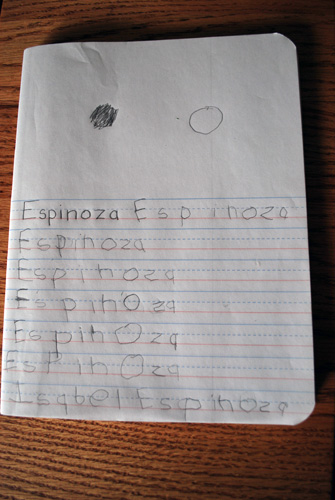 Espinoza Espinoza
Espinoza
Espinoza
Espinoza
Espinoza
Espinoza
Isabel Espinoza